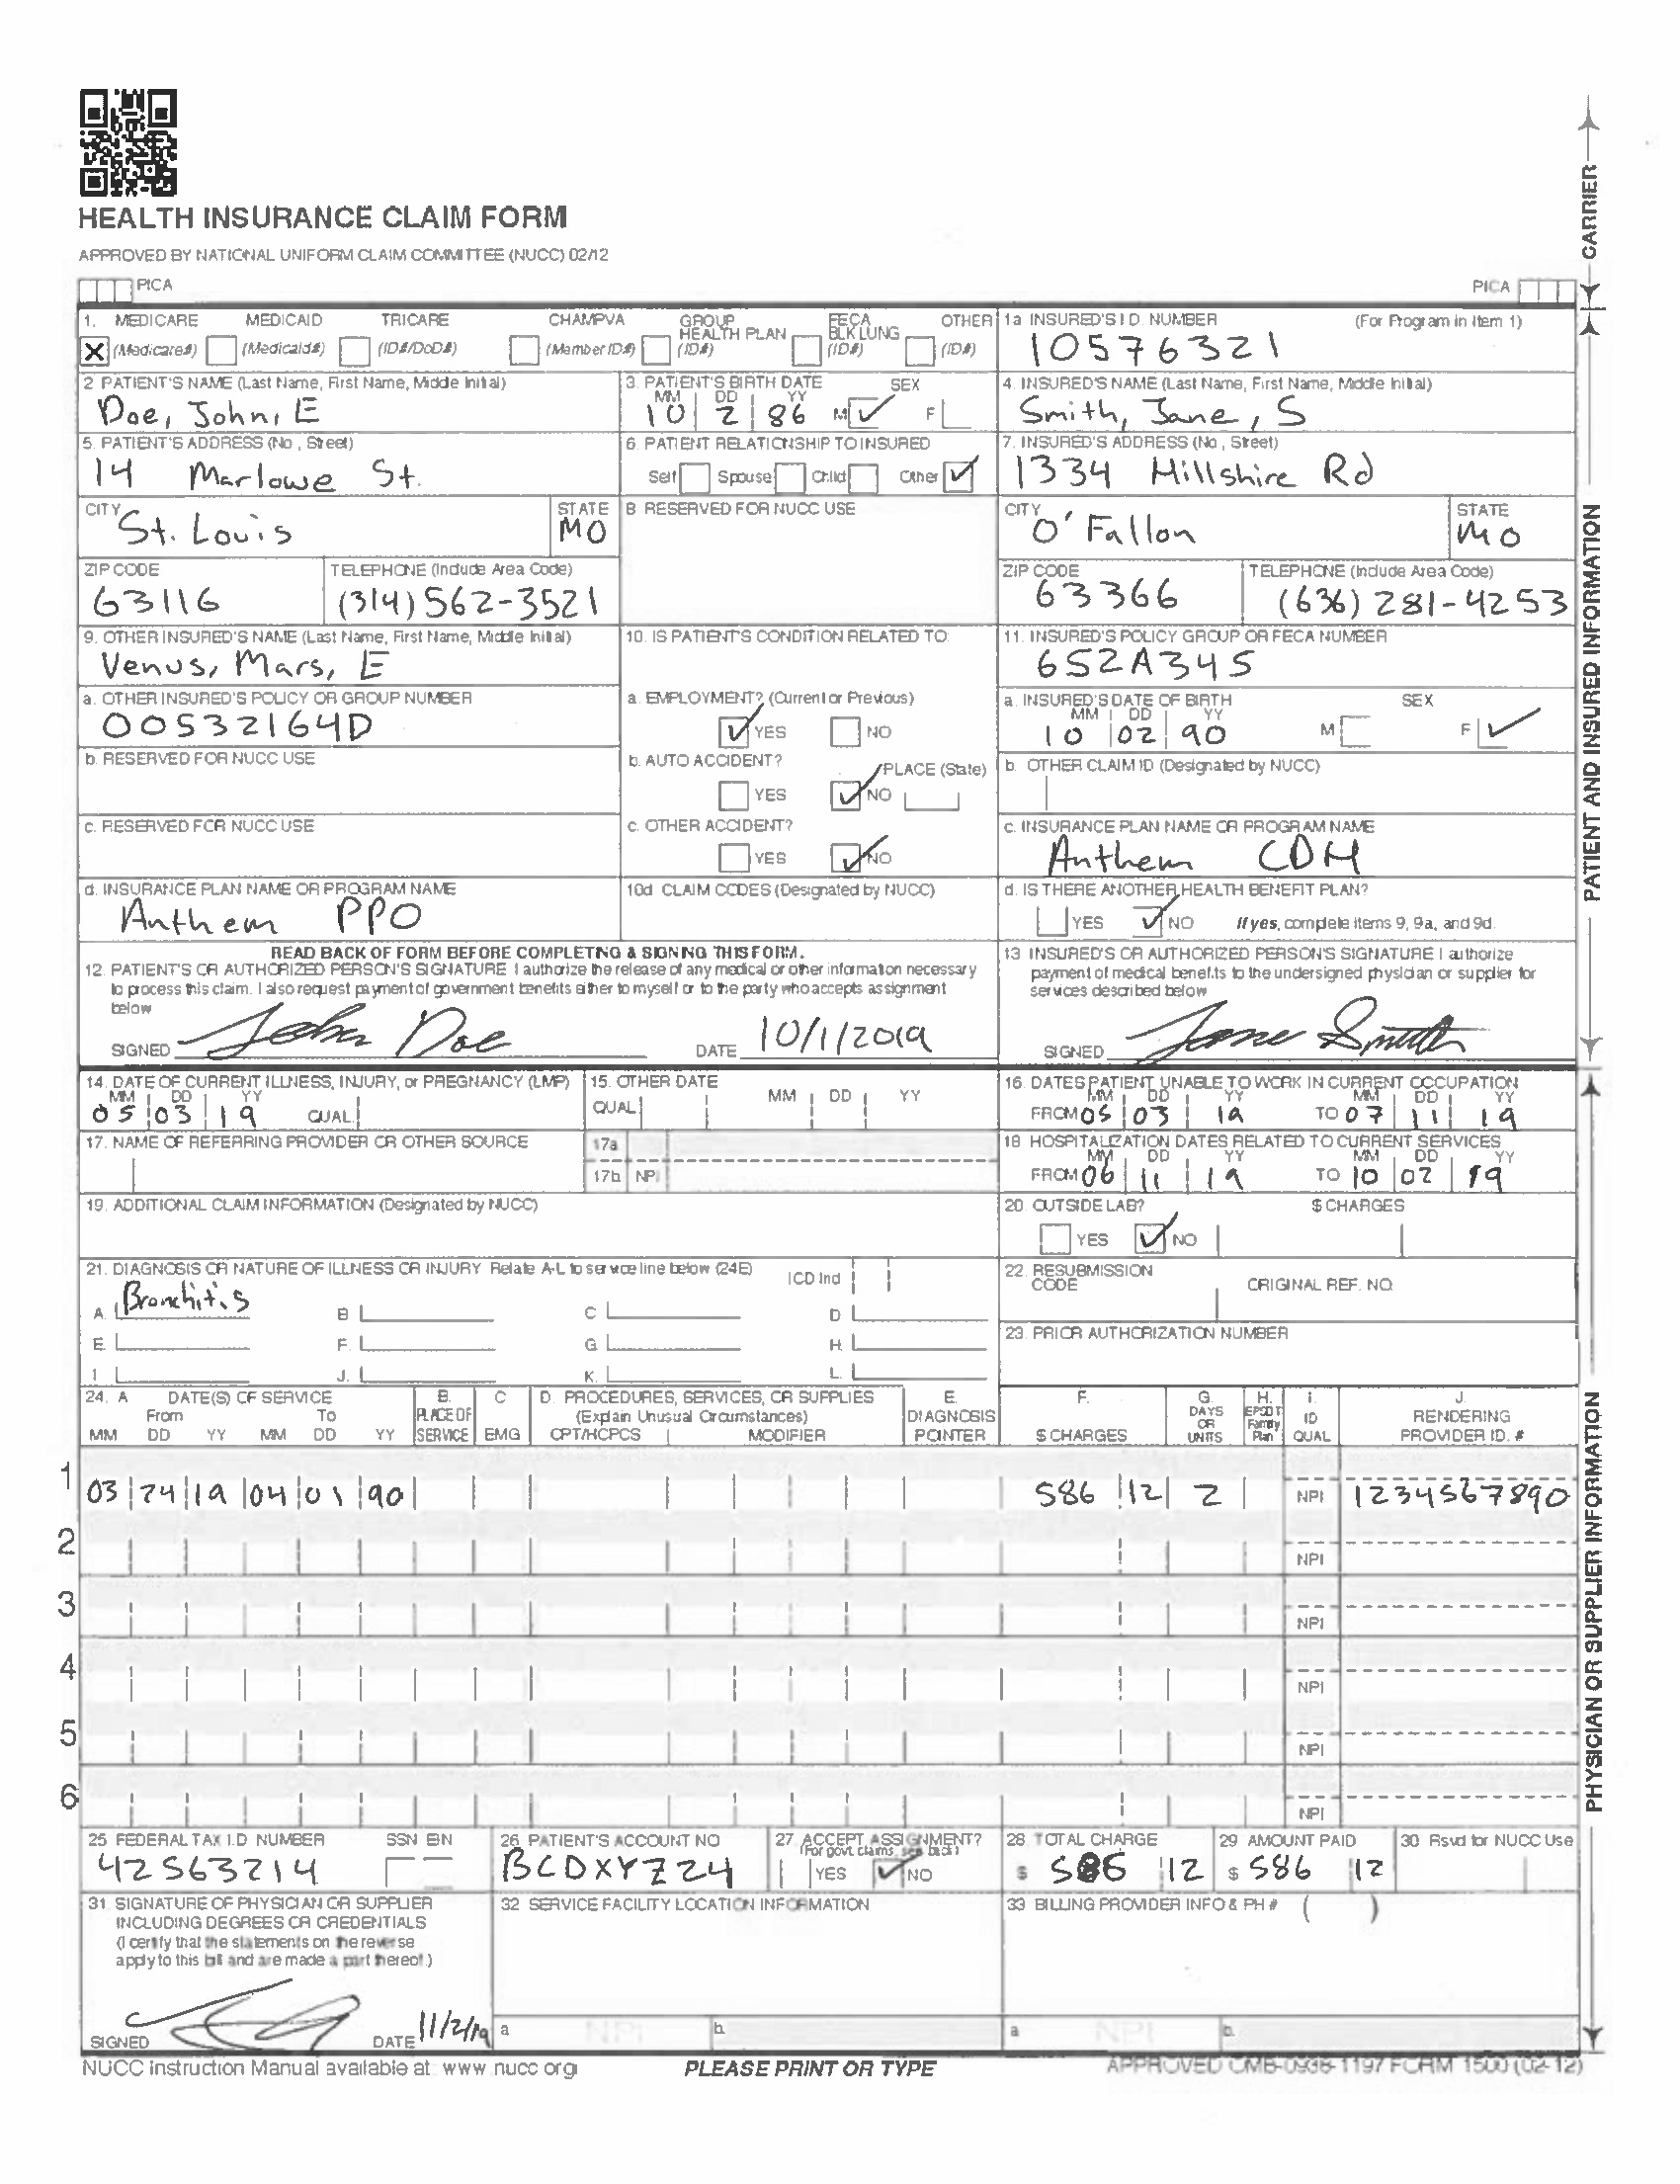 HEALTH INSURANCE CLAIM FORM
APPROVED BY NATIONAL UNIFORM CLAIM COMMITTEE (NUCC) 02/12
PICA
PICA
CARRIER
1. MEDICARE MEDICAID TRICARE CHAMPVA GROUP HEALTH PLAN FECA BLK LUNG OTHER
X (Medicare#) (Medicaid#) (ID#/DoD#) (Member ID#) (ID#) (ID#) (ID#)
1a INSURED'S I D NUMBER (For Program in Item 1)
10576321
2 PATIENT'S NAME (Last Name, First Name, Middle Initial)
Doe, John, E
3. PATIENT'S BIRTH DATE SEX
MM DD YY
10 2 86 M ✓ F
4. INSURED'S NAME (Last Name, First Name, Middle Initial)
Smith, Jane, S
5. PATIENT'S ADDRESS (No, Street)
14 Marlowe St.
6. PATIENT RELATIONSHIP TO INSURED
Self Spouse Child Other ✓
7. INSURED'S ADDRESS (No, Street)
1334 Hillshire Rd
CITY STATE
St. Louis MO
8 RESERVED FOR NUCC USE
CITY STATE
O'Fallon MO
ZIP CODE TELEPHONE (Include Area Code)
63116 (314) 562-3521
ZIP CODE TELEPHONE (Include Area Code)
63366 (636) 281-4253
9. OTHER INSURED'S NAME (Last Name, First Name, Middle Initial)
Venus, Mars, E
10. IS PATIENT'S CONDITION RELATED TO
11. INSURED'S POLICY GROUP OR FECA NUMBER
652A345
a. OTHER INSURED'S POLICY OR GROUP NUMBER
00532164D
a. EMPLOYMENT? (Current or Previous)
✓ YES NO
a. INSURED'S DATE OF BIRTH SEX
MM DD YY
10 02 90 M F ✓
b. RESERVED FOR NUCC USE
b. AUTO ACCIDENT? PLACE (State)
YES ✓ NO
b. OTHER CLAIM ID (Designated by NUCC)
c. RESERVED FOR NUCC USE
c. OTHER ACCIDENT?
YES ✓ NO
c. INSURANCE PLAN NAME OR PROGRAM NAME
Anthem CDH
d. INSURANCE PLAN NAME OR PROGRAM NAME
Anthem PPO
10d CLAIM CODES (Designated by NUCC)
d. IS THERE ANOTHER HEALTH BENEFIT PLAN?
YES ✓ NO If yes, complete items 9, 9a, and 9d.
PATIENT AND INSURED INFORMATION
READ BACK OF FORM BEFORE COMPLETING & SIGNING THIS FORM.
12. PATIENT'S OR AUTHORIZED PERSON'S SIGNATURE I authorize the release of any medical or other information necessary
to process this claim. I also request payment of government benefits either to myself or to the party who accepts assignment
below
SIGNED John Doe DATE 10/1/2019
13 INSURED'S OR AUTHORIZED PERSON'S SIGNATURE I authorize
payment of medical benefits to the undersigned physician or supplier for
services described below
SIGNED Jane Smith
14. DATE OF CURRENT ILLNESS, INJURY, or PREGNANCY (LMP)
MM DD YY
05 03 19 QUAL
15. OTHER DATE
QUAL MM DD YY
16. DATES PATIENT UNABLE TO WORK IN CURRENT OCCUPATION
MM DD YY MM DD YY
FROM 05 03 19 TO 07 11 19
17. NAME OF REFERRING PROVIDER OR OTHER SOURCE
17a
17b NPI
18 HOSPITALIZATION DATES RELATED TO CURRENT SERVICES
MM DD YY MM DD YY
FROM 06 11 19 TO 10 02 19
19. ADDITIONAL CLAIM INFORMATION (Designated by NUCC)
20. OUTSIDE LAB? $ CHARGES
YES ✓ NO
21. DIAGNOSIS OR NATURE OF ILLNESS OR INJURY Relate A-L to service line below (24E) ICD Ind
A. Bronchitis B C D
E. F. G H.
I. J. K. L.
22. RESUBMISSION CODE ORIGINAL REF. NO.
23. PRIOR AUTHORIZATION NUMBER
24. A DATE(S) OF SERVICE B. PLACE OF SERVICE C EMG D. PROCEDURES, SERVICES, OR SUPPLIES E. DIAGNOSIS POINTER F. $ CHARGES G. DAYS OR UNITS H. EPSDT Family Plan I. ID QUAL J. RENDERING PROVIDER ID. #
From To (Explain Unusual Circumstances)
MM DD YY MM DD YY CPT/HCPCS MODIFIER
1 03 24 19 04 01 90 586 12 2 NPI 1234567890
2 NPI
3 NPI
4 NPI
5 NPI
6 NPI
PHYSICIAN OR SUPPLIER INFORMATION
25 FEDERAL TAX I.D NUMBER SSN EIN
42563214
26. PATIENT'S ACCOUNT NO
BCDXYZ24
27 ACCEPT ASSIGNMENT?
(For govt. claims, see back)
YES ✓ NO
28. TOTAL CHARGE
$ 586 12
29 AMOUNT PAID
$ 586 12
30 Rsvd for NUCC Use
31 SIGNATURE OF PHYSICIAN OR SUPPLIER
INCLUDING DEGREES OR CREDENTIALS
(I certify that the statements on the reverse
apply to this bill and are made a part thereof.)
SIGNED DATE 11/2/19
32 SERVICE FACILITY LOCATION INFORMATION
a NPI b.
33 BILLING PROVIDER INFO & PH # ( )
a NPI b.
NUCC Instruction Manual available at: www.nucc.org
PLEASE PRINT OR TYPE
APPROVED OMB-0938-1197 FORM 1500 (02-12)